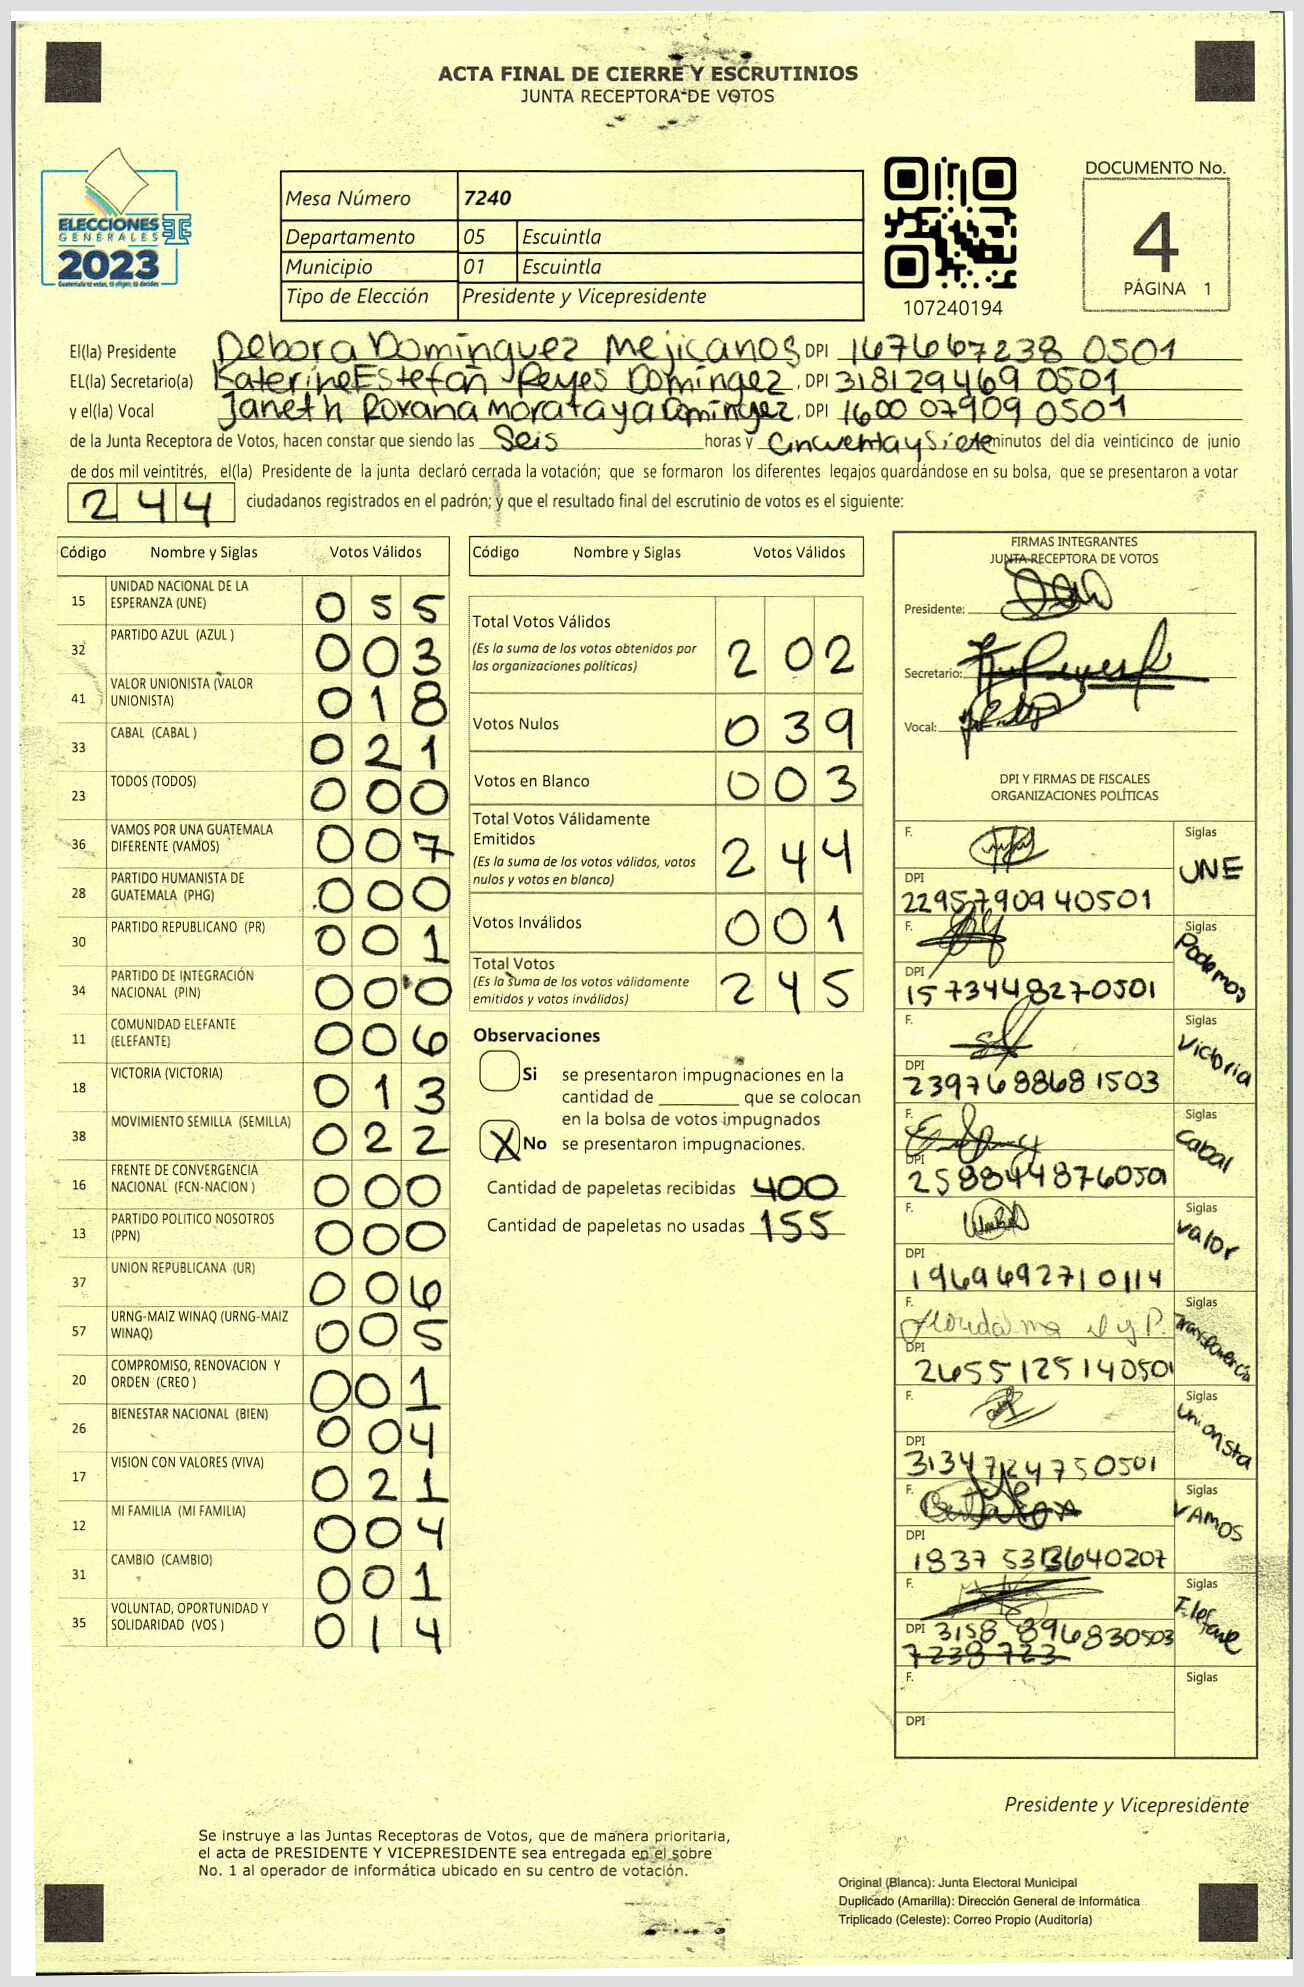 ACTA FINAL DE CIERRE Y ESCRUTINIOS
JUNTA RECEPTORA DE VOTOS
ELECCIONES
GENERALES
2023
Guatemala tú votas, tú eliges, tú decides
Mesa Número 7240
Departamento 05 Escuintla
Municipio 01 Escuintla
Tipo de Elección Presidente y Vicepresidente
107240194
DOCUMENTO No.
4
PÁGINA 1
El(la) Presidente Debora Domínguez Mejicanos DPI 167667238 0501
EL(la) Secretario(a) Katerine Estefañ Reyes Domíngez, DPI 318129469 0501
y el(la) Vocal Janeth Roxana morataya Domíngez, DPI 1600 07909 0501
de la Junta Receptora de Votos, hacen constar que siendo las Seis horas y Cincuentaysiete minutos del día veinticinco de junio
de dos mil veintitrés, el(la) Presidente de la junta declaró cerrada la votación; que se formaron los diferentes legajos guardándose en su bolsa, que se presentaron a votar
244 ciudadanos registrados en el padrón; y que el resultado final del escrutinio de votos es el siguiente:
Código Nombre y Siglas Votos Válidos
15 UNIDAD NACIONAL DE LA ESPERANZA (UNE) 055
32 PARTIDO AZUL (AZUL ) 003
41 VALOR UNIONISTA (VALOR UNIONISTA) 018
33 CABAL (CABAL ) 021
23 TODOS (TODOS) 000
36 VAMOS POR UNA GUATEMALA DIFERENTE (VAMOS) 007
28 PARTIDO HUMANISTA DE GUATEMALA (PHG) 000
30 PARTIDO REPUBLICANO (PR) 001
34 PARTIDO DE INTEGRACIÓN NACIONAL (PIN) 000
11 COMUNIDAD ELEFANTE (ELEFANTE) 006
18 VICTORIA (VICTORIA) 013
38 MOVIMIENTO SEMILLA (SEMILLA) 022
16 FRENTE DE CONVERGENCIA NACIONAL (FCN-NACION ) 000
13 PARTIDO POLITICO NOSOTROS (PPN) 000
37 UNION REPUBLICANA (UR) 006
57 URNG-MAIZ WINAQ (URNG-MAIZ WINAQ) 005
20 COMPROMISO, RENOVACION Y ORDEN (CREO ) 001
26 BIENESTAR NACIONAL (BIEN) 004
17 VISION CON VALORES (VIVA) 021
12 MI FAMILIA (MI FAMILIA) 004
31 CAMBIO (CAMBIO) 001
35 VOLUNTAD, OPORTUNIDAD Y SOLIDARIDAD (VOS ) 014
Código Nombre y Siglas Votos Válidos
Total Votos Válidos 202
(Es la suma de los votos obtenidos por
las organizaciones políticas)
Votos Nulos 039
Votos en Blanco 003
Total Votos Válidamente
Emitidos 244
(Es la suma de los votos válidos, votos
nulos y votos en blanco)
Votos Inválidos 001
Total Votos 245
(Es la suma de los votos válidamente
emitidos y votos inválidos)
Observaciones
Si se presentaron impugnaciones en la
cantidad de ________ que se colocan
en la bolsa de votos impugnados
X No se presentaron impugnaciones.
Cantidad de papeletas recibidas 400
Cantidad de papeletas no usadas 155
FIRMAS INTEGRANTES
JUNTA RECEPTORA DE VOTOS
Presidente:
Secretario:
Vocal:
DPI Y FIRMAS DE FISCALES
ORGANIZACIONES POLÍTICAS
F. Siglas UNE
DPI 2295790940501
F. Siglas Podemos
DPI 1573448270501
F. Siglas Victoria
DPI 2397688681503
F. Siglas Cabal
DPI 2588448760501
F. Siglas valor
DPI 1969692710114
F. Siglas Transparencia
DPI 2655125140501
F. Siglas Unionista
DPI 3134724750501
F. Siglas VAMOS
DPI
F. Siglas Elefante
DPI 3158 896830503
7238 723
F. Siglas
DPI
Presidente y Vicepresidente
Se instruye a las Juntas Receptoras de Votos, que de manera prioritaria,
el acta de PRESIDENTE Y VICEPRESIDENTE sea entregada en el sobre
No. 1 al operador de informática ubicado en su centro de votación.
Original (Blanca): Junta Electoral Municipal
Duplicado (Amarilla): Dirección General de Informática
Triplicado (Celeste): Correo Propio (Auditoría)